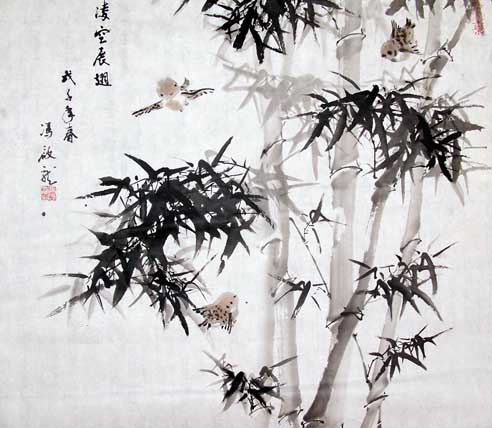 凌空展翅
戊子年春
冯啟龙